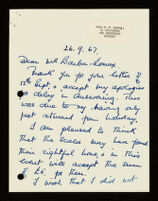 26.9.67
Dear Mr Barber-Lomax,
Thank you for your letter of
12th Sept, & accept my apologies
for delay in answering. This
was due to my having only
just returned from holiday.
I am pleased to think
that the scales may have found
their rightful home, & in this
event will accept the sum
of £5. for them.
I wish that I did not